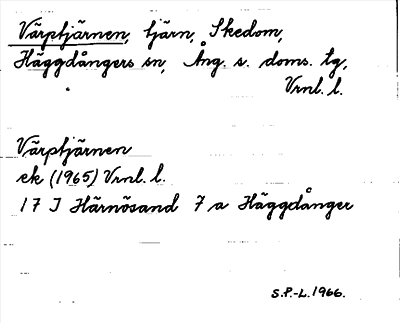 Värptjärnen, tjärn, Skedom,
Häggdångers sn, Ång. s. doms. tg,
Vrnl. l.
Värptjärnen
ek (1965) Vrnl. l.
17 I Härnösand 7 a Häggdånger
S.P.-L. 1966.